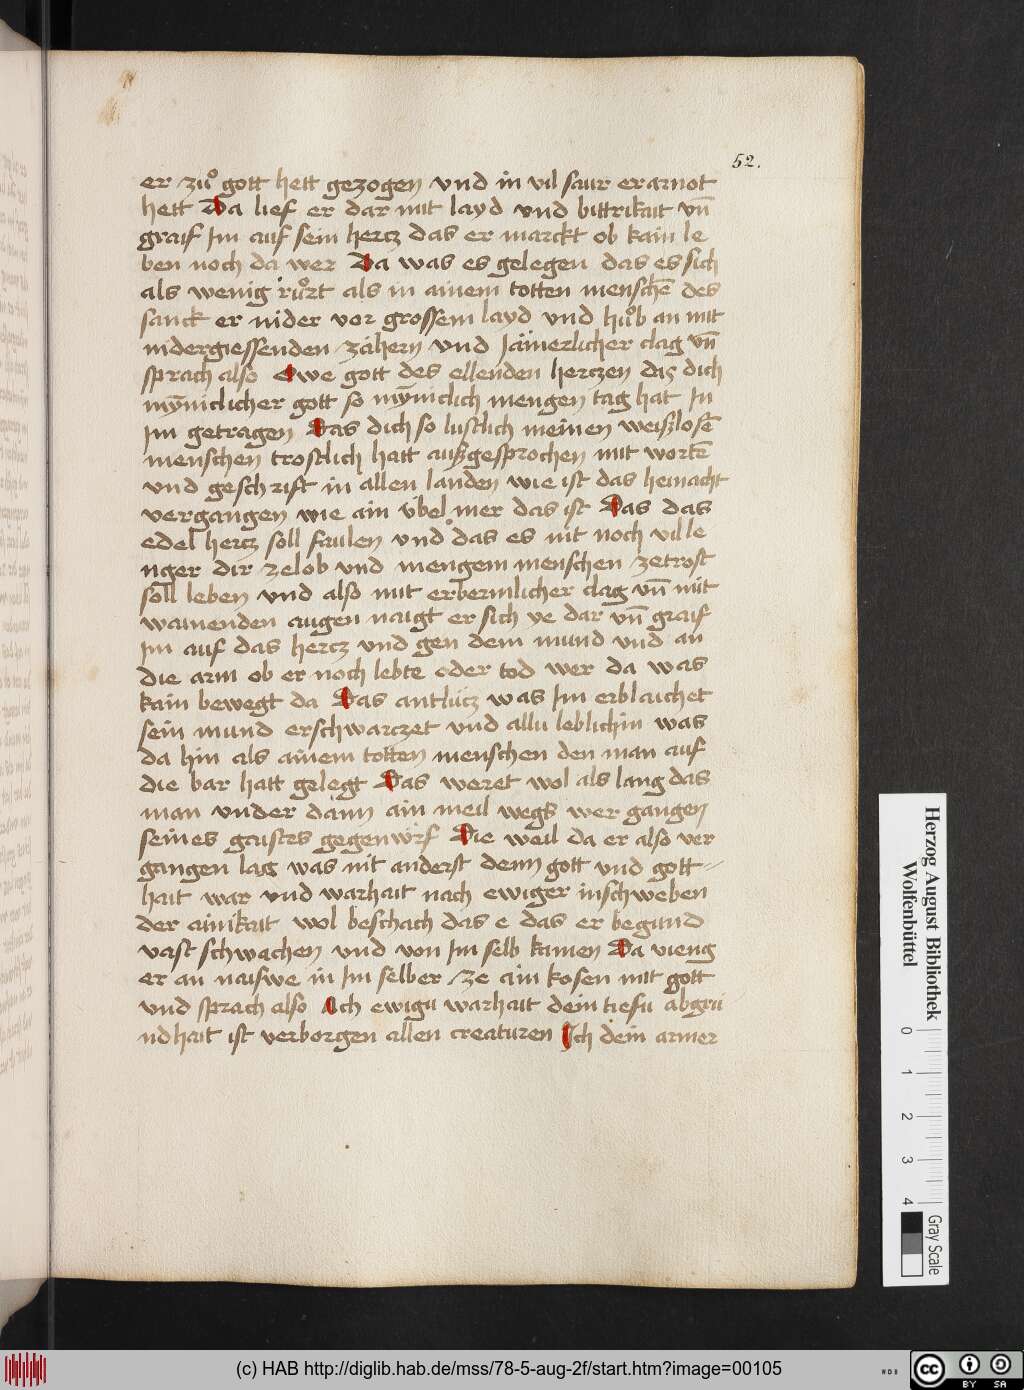 52.
er zuͦ gott hett gezogen vnd in vil saur erarnot
hett Da lief er dar mit layd vnd bittrikait vn̄
graif Im auf sein hertz das er marckt ob kain le
ben noch da wer Da was es gelegen das es sich
als wenig ruͦrt als in ainem totten mensch̄e des
sanck er nider vor grossem layd vnd huͦb an mit
nidergiessenden zähern vnd Jämerlicher clag vn̄
sprach also Owe gott des ellenden hertzen das dich
mÿniclicher gott so mÿniclich mengen tag hat In
Im getragen Das dich so lustlich meinen weißlosē
menschen trostlich hatt außgesprochen mit wortē
vnd geschrift in allen landen wie ist das heinacht
vergangen wie ain v̇bel mer das ist Das das
edel hertz soll faulen vnd das es nit noch vil le
nger dir zelob vnd mengem menschen zetrost
soll leben vnd also mit erbermlicher clag vn̄ mit
wainenden augen naigt er sich ye dar vn̄ graif
Im auf das hertz vnd gen dem mund vnd an
die arm ob er noch lebte oder tod wer da was
kain bewegt da Das antlütz was Im erblaichet
sein mund erschwarczet vnd allu leblichin was
da hin als ainem totten menschen den man auf
die bar hatt gelegt Das weret wol als lang das
man vnder dann ain meil wegs wer gangen
seines gaistes gegenwürf Die weil da er also ver
gangen lag was nit anderst denn gott vnd gott-
hait war vnd warhait nach ewiger inschweben
der ainikait wol beschach das e das er begund
vast schwachen vnd von Im selb kumen Da vieng
er an naiswe in Im selber ze ain kosen mit gott
vnd sprach also Ach ewigu warhait dein tiefu abgrü
ndhait ist verborgen allen creaturen Ich dein armer
Herzog August Bibliothek
Wolfenbüttel
0 1 2 3 4
Gray Scale
(c) HAB http://diglib.hab.de/mss/78-5-aug-2f/start.htm?image=00105
WDB
cc BY SA